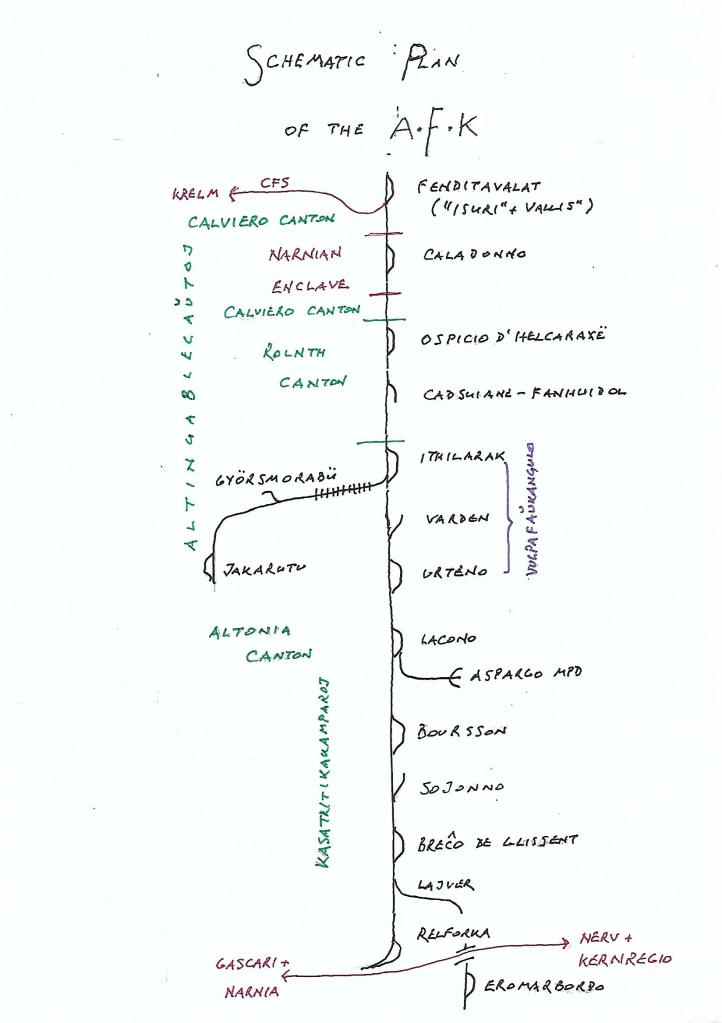 SCHEMATIC PLAN
OF THE A.F.K
KRELM
CFS
FENDITAVALAT
("ISURI" + VALLIS")
CALVIERO CANTON
NARNIAN
ENCLAVE
CALADONNO
CALVIERO CANTON
ROLNTH
CANTON
OSPICIO D'HELCARAXË
CADSUIANE-FANHUIDOL
ALTINGABLECAŬTOJ
ITHILARAK
GYÖRSMORABÜ
VARDEN
VULPAFAŬKANGULO
JAKARUTU
URTENO
ALTONIA
CANTON
LACONO
ASPARGO MPD
KASATRITIKAKAMPAROJ
BOURSSON
SOJONNO
BREĈO DE GLISSENT
LAJVER
RELFORKA
GASCARI +
NARNIA
NERV +
KERNREGIO
EROMARBORDO